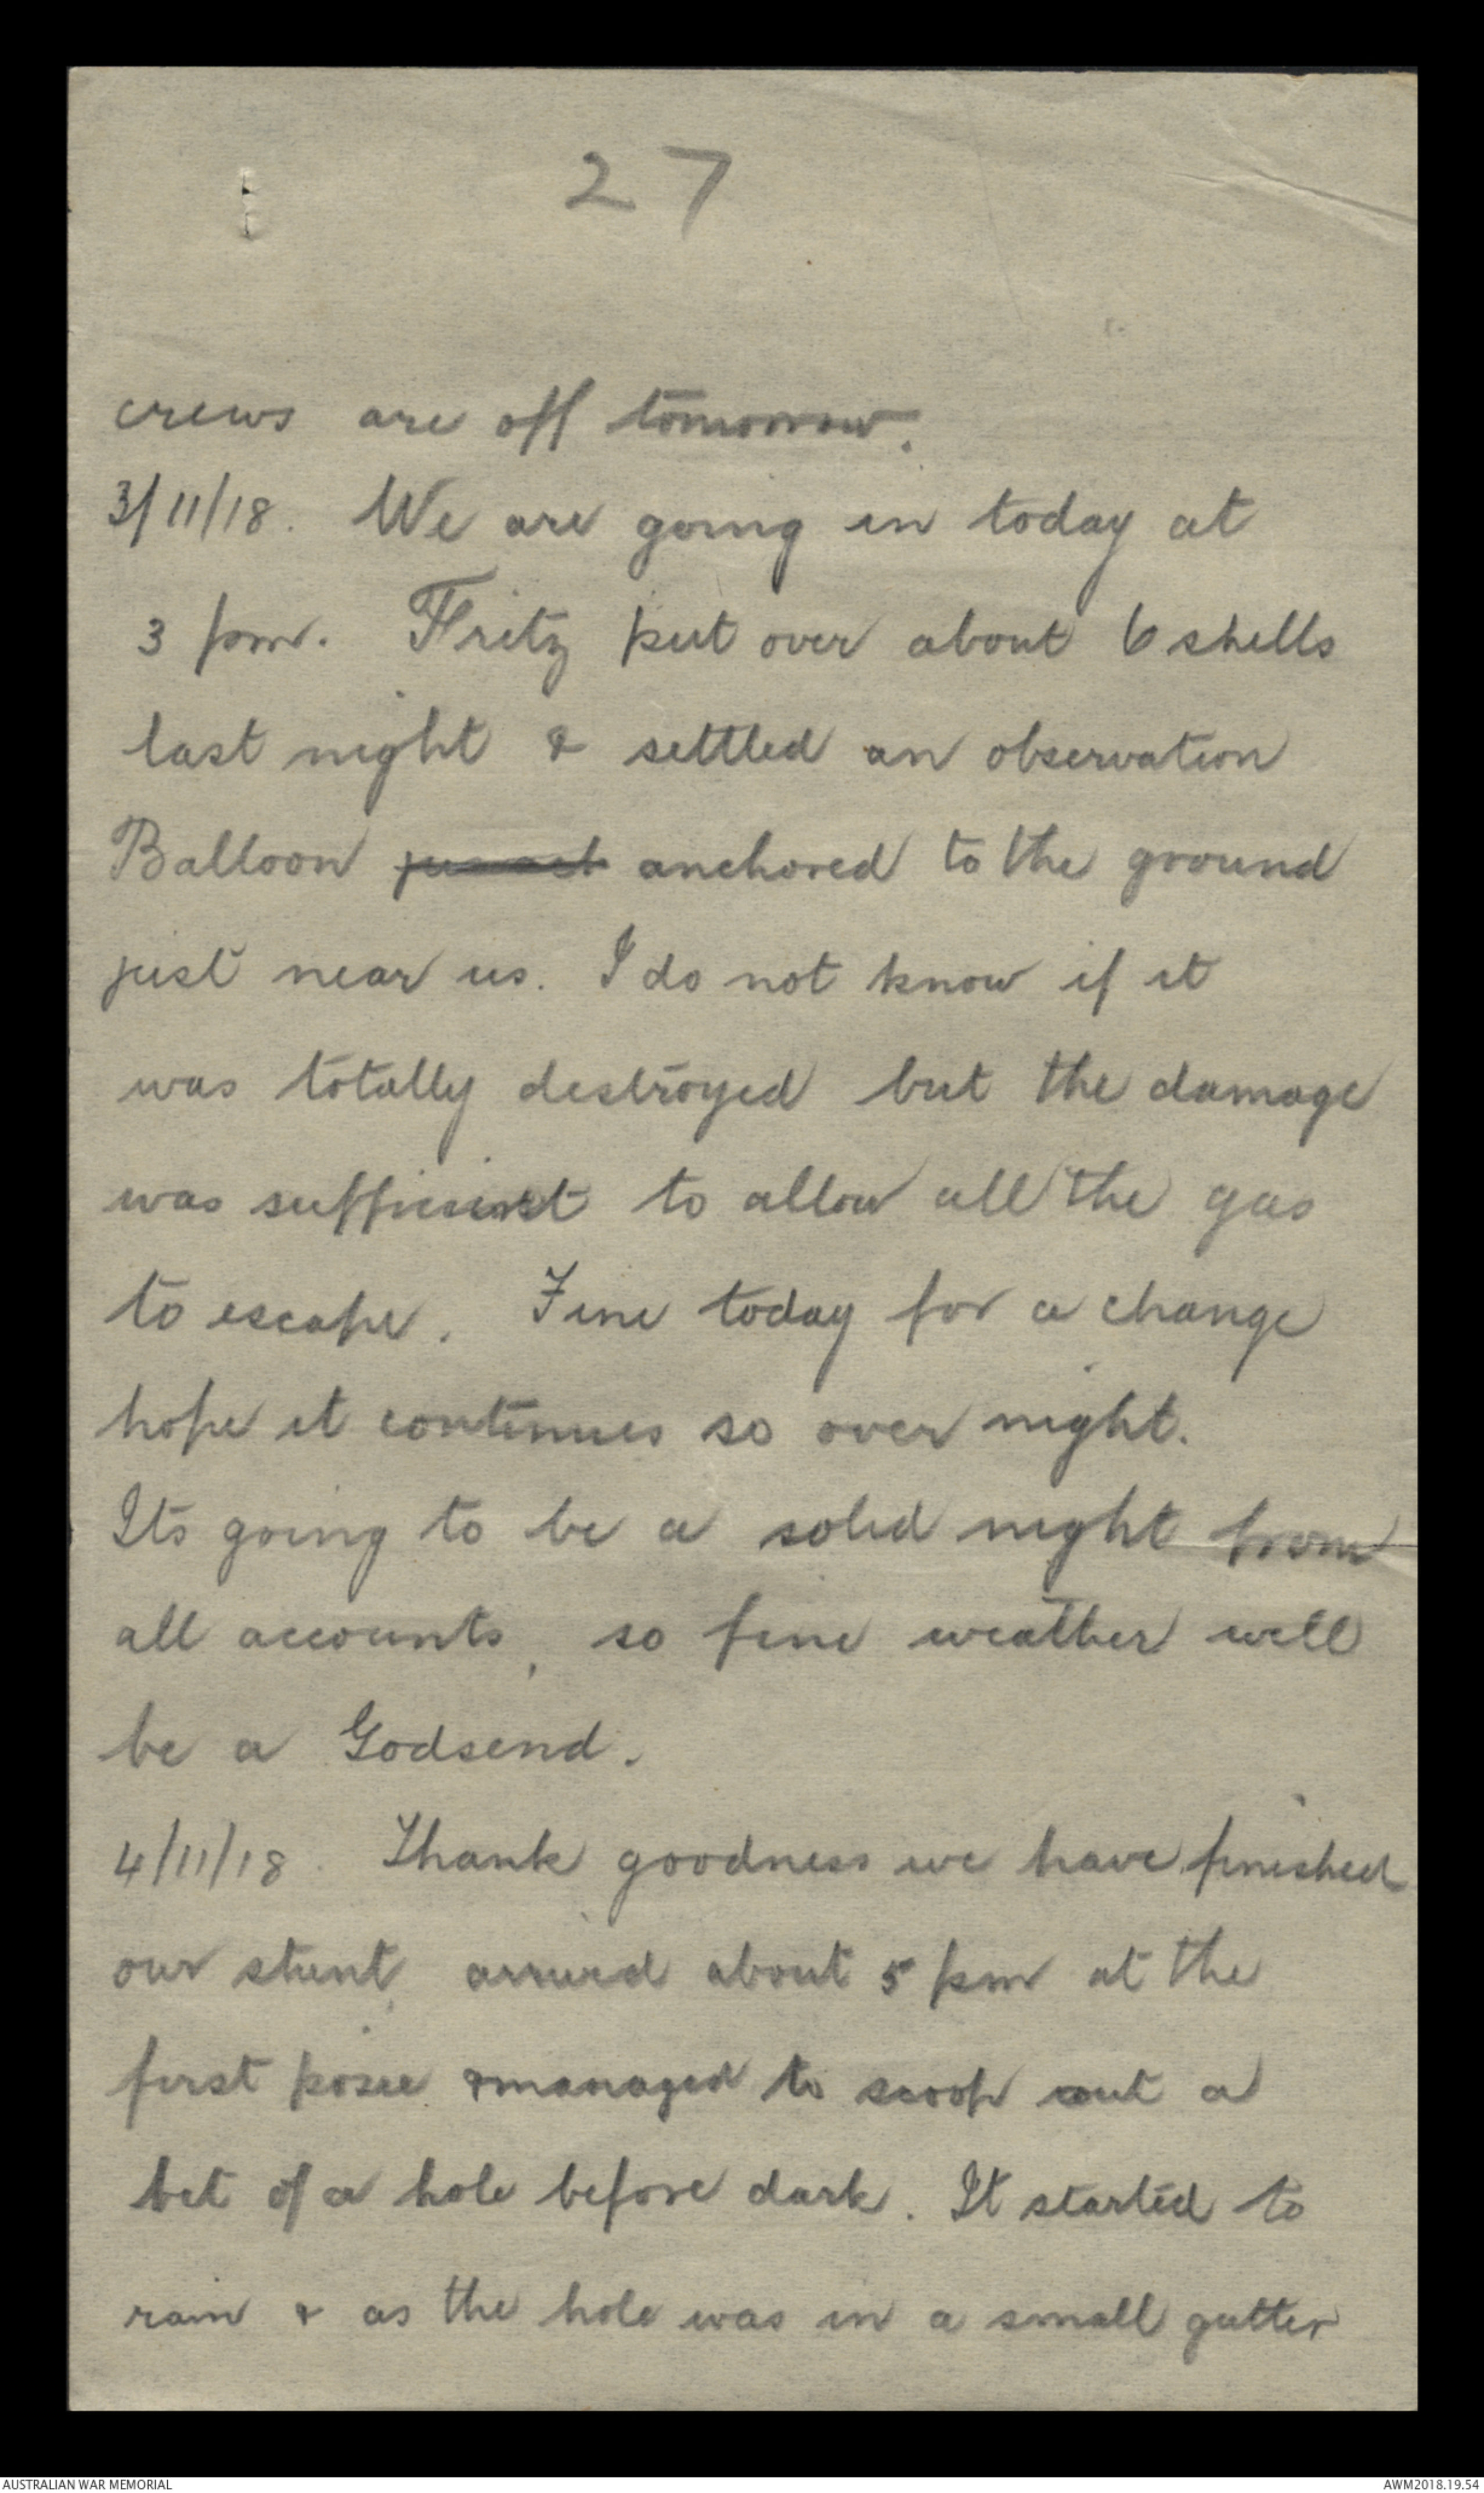 27
crews are off tomorrow.
3/11/18. We are going in today at
3 pm. Fritz put over about 6 shells
last night & settled an observation
Balloon anchored to the ground
just near us. I do not know if it
was totally destroyed but the damage
was sufficient to allow all the gas
to escape. Fine today for a change
hope it continues so over night.
Its going to be a solid night from
all accounts, so fine weather will
be a Godsend.
4/11/18. Thank goodness we have finished
our stunt, arrived about 5 pm at the
first posie & managed to scoop out a
bit of a hole before dark. It started to
rain & as the hole was in a small gutter
AUSTRALIAN WAR MEMORIAL
AWM2018.19.54